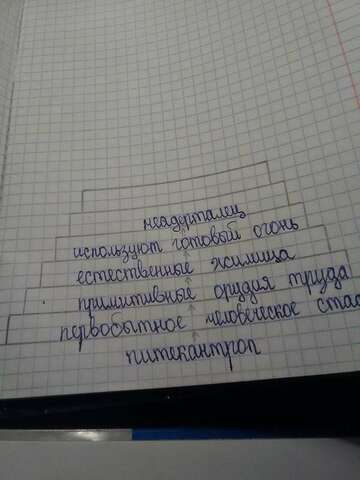 неадерталец
используют готовый огонь
естественные жилища
примитивные орудия труда
первобытное человеческое ста
питекантроп